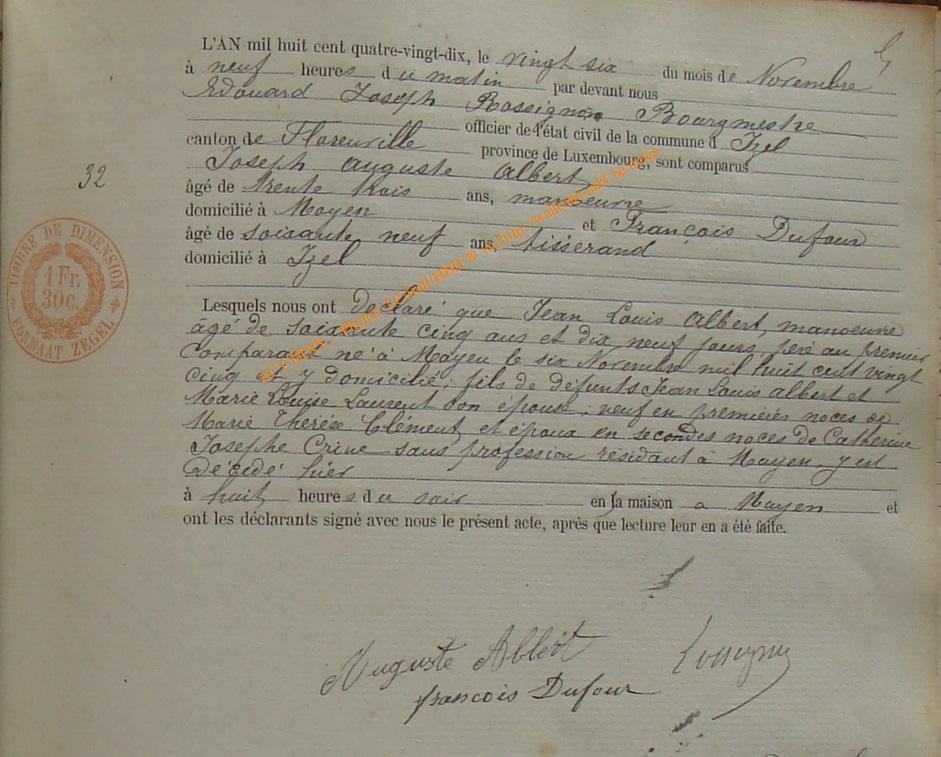 L'AN mil huit cent quatre-vingt-dix, le vingt six du mois de Novembre
à neuf heures du matin par devant nous
Edouard Joseph Rossignon Bourgmestre
officier de l'état civil de la commune d Izel
canton de Florenville province de Luxembourg, sont comparus
Joseph Auguste Albert,
32
âgé de trente trois ans, manoeuvre
domicilié à Moyen et François Dufour
âgé de soixante neuf ans, tisserand
domicilié à Izel
TIMBRE DE DIMENSION
1 Fr.
30 C.
FORMAAT ZEGEL
Lesquels nous ont déclaré que Jean Louis Albert, manoeuvre
âgé de soixante cinq ans et dix neuf jours, père au premier
comparant né à Moyen le six Novembre mil huit cent vingt
cinq et y domicilié; fils de défunts Jean Louis Albert et
Marie Louise Laurent son épouse; veuf en premières noces de
Marie Thérèse Clément, et époux en secondes noces de Catherine
Josephe Crine sans profession résidant à Moyen, y est
décédé hier
à huit heures du soir en sa maison a Moyen et
ont les déclarants signé avec nous le présent acte, après que lecture leur en a été faite.
Auguste Albert
françois Dufour